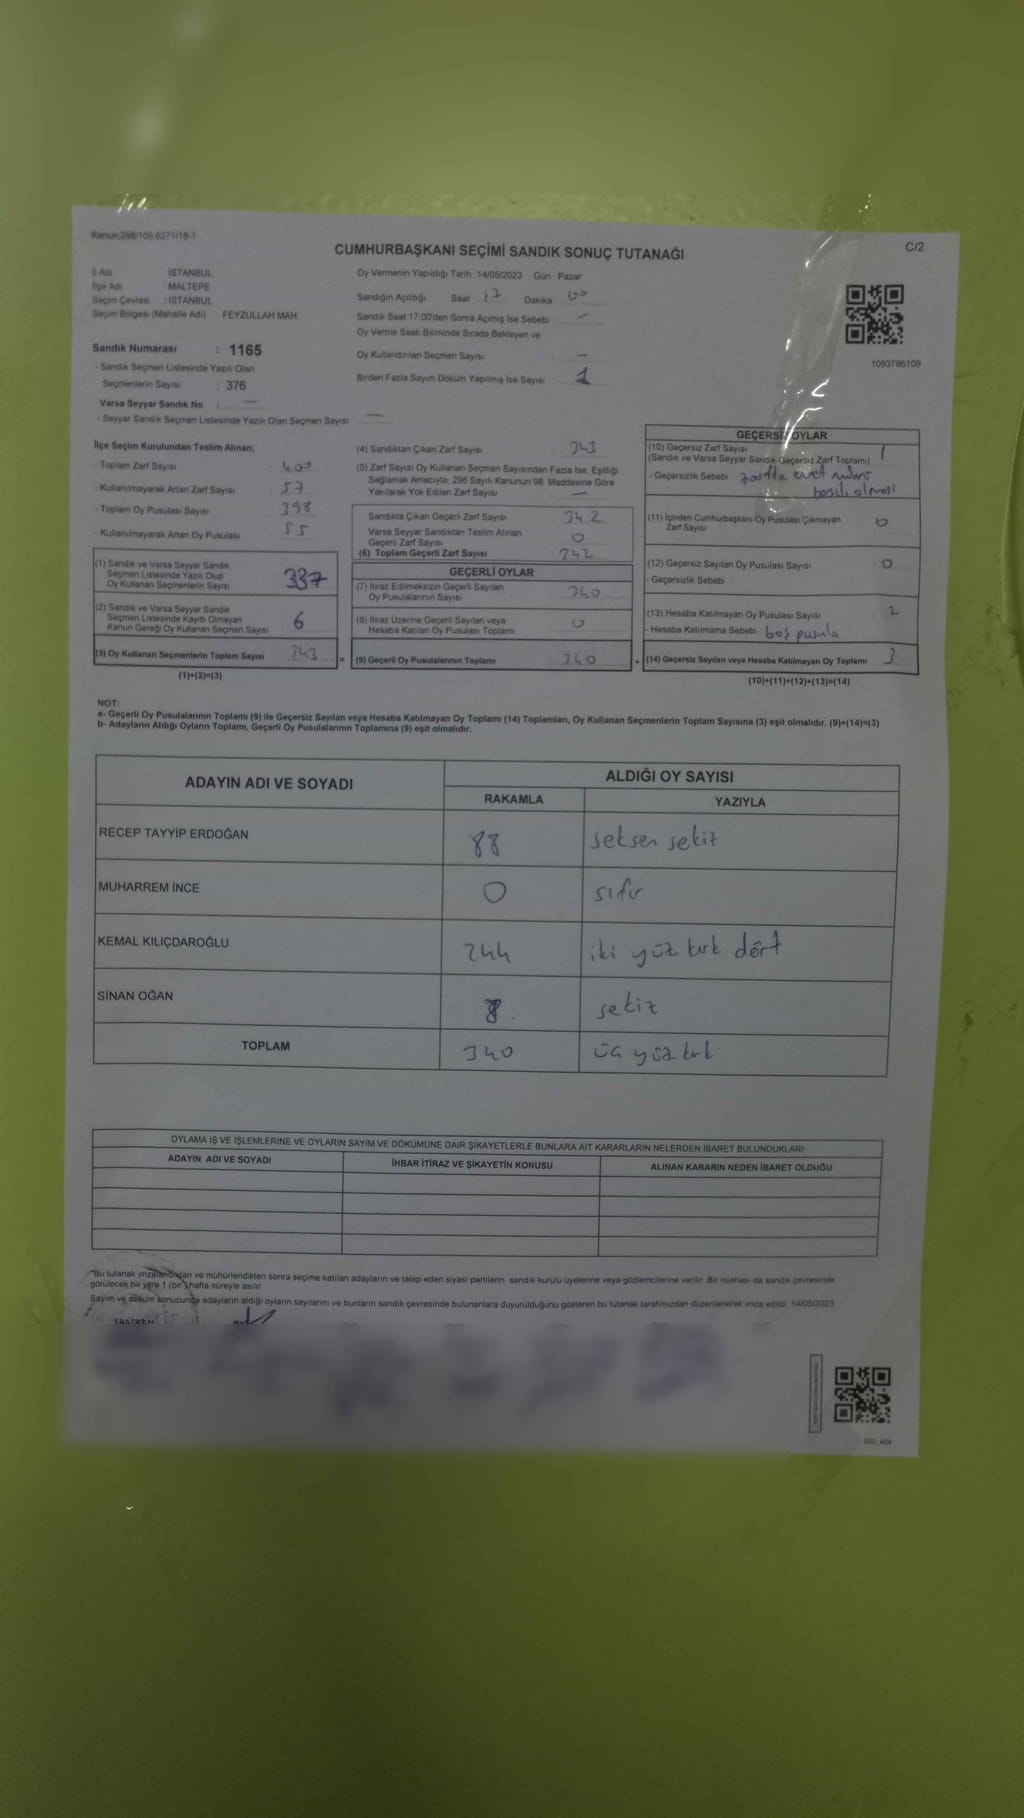 Kanun:298/106 6271/18-1
C/2
CUMHURBAŞKANI SEÇİMİ SANDIK SONUÇ TUTANAĞI
İl Adı : İSTANBUL
İlçe Adı : MALTEPE
Seçim Çevresi : İSTANBUL
Seçim Bölgesi (Mahalle Adı) : FEYZULLAH MAH.
Sandık Numarası : 1165
- Sandık Seçmen Listesinde Yazılı Olan
Seçmenlerin Sayısı : 376
Varsa Seyyar Sandık No : —
- Seyyar Sandık Seçmen Listesinde Yazılı Olan Seçmen Sayısı : —
Oy Vermenin Yapıldığı Tarih :14/05/2023 Gün : Pazar
Sandığın Açıldığı Saat 17 Dakika 00
Sandık Saat 17:00'den Sonra Açılmış İse Sebebi : —
Oy Verme Saati Bitiminde Sırada Bekleyen ve
Oy Kullandırılan Seçmen Sayısı : —
Birden Fazla Sayım Döküm Yapılmış İse Sayısı : 1
1093786109
İlçe Seçim Kurulundan Teslim Alınan;
- Toplam Zarf Sayısı : 400
- Kullanılmayarak Artan Zarf Sayısı : 57
- Toplam Oy Pusulası Sayısı : 398
- Kullanılmayarak Artan Oy Pusulası : 55
(1) Sandık ve Varsa Seyyar Sandık
Seçmen Listesinde Yazılı Olup
Oy Kullanan Seçmenlerin Sayısı 337
(2) Sandık ve Varsa Seyyar Sandık
Seçmen Listesinde Kayıtlı Olmayan
Kanun Gereği Oy Kullanan Seçmen Sayısı 6
(3) Oy Kullanan Seçmenlerin Toplam Sayısı 343
(1)+(2)=(3)
(4) Sandıktan Çıkan Zarf Sayısı 343
(5) Zarf Sayısı Oy Kullanan Seçmen Sayısından Fazla İse, Eşitliği
Sağlamak Amacıyla; 298 Sayılı Kanunun 98. Maddesine Göre
Yakılarak Yok Edilen Zarf Sayısı —
Sandıkta Çıkan Geçerli Zarf Sayısı 342
Varsa Seyyar Sandıktan Teslim Alınan
Geçerli Zarf Sayısı 0
(6) Toplam Geçerli Zarf Sayısı 342
GEÇERLİ OYLAR
(7) İtiraz Edilmeksizin Geçerli Sayılan
Oy Pusulalarının Sayısı 340
(8) İtiraz Üzerine Geçerli Sayılan veya
Hesaba Katılan Oy Pusulası Toplamı 0
= (9) Geçerli Oy Pusulalarının Toplamı 340
GEÇERSİZ OYLAR
(10) Geçersiz Zarf Sayısı
(Sandık ve Varsa Seyyar Sandık Geçersiz Zarf Toplamı) 1
- Geçersizlik Sebebi : zarfta evet mührü
basılı olması
(11) İçinden Cumhurbaşkanı Oy Pusulası Çıkmayan
Zarf Sayısı 0
(12) Geçersiz Sayılan Oy Pusulası Sayısı 0
- Geçersizlik Sebebi
(13) Hesaba Katılmayan Oy Pusulası Sayısı 2
- Hesaba Katılmama Sebebi : boş pusula
+ (14) Geçersiz Sayılan veya Hesaba Katılmayan Oy Toplamı 3
(10)+(11)+(12)+(13)=(14)
NOT:
a- Geçerli Oy Pusulalarının Toplamı (9) ile Geçersiz Sayılan veya Hesaba Katılmayan Oy Toplamı (14) Toplamları, Oy Kullanan Seçmenlerin Toplam Sayısına (3) eşit olmalıdır. (9)+(14)=(3)
b- Adayların Aldığı Oyların Toplamı, Geçerli Oy Pusulalarının Toplamına (9) eşit olmalıdır.
ADAYIN ADI VE SOYADI
ALDIĞI OY SAYISI
RAKAMLA YAZIYLA
RECEP TAYYİP ERDOĞAN 88 seksen sekiz
MUHARREM İNCE 0 sıfır
KEMAL KILIÇDAROĞLU 244 iki yüz kırk dört
SİNAN OĞAN 8 sekiz
TOPLAM 340 üç yüz kırk
OYLAMA İŞ VE İŞLEMLERİNE VE OYLARIN SAYIM VE DÖKÜMÜNE DAİR ŞİKAYETLERLE BUNLARA AİT KARARLARIN NELERDEN İBARET BULUNDUKLARI
ADAYIN ADI VE SOYADI İHBAR İTİRAZ VE ŞİKAYETİN KONUSU ALINAN KARARIN NEDEN İBARET OLDUĞU
"Bu tutanak imzalandıktan ve mühürlendikten sonra seçime katılan adayların ve talep eden siyasi partilerin sandık kurulu üyelerine veya gözlemcilerine verilir. Bir nüshası da sandık çevresinde
görülecek bir yere 1 (bir) hafta süreyle asılır.
Sayım ve döküm sonucunda adayların aldığı oyların sayılarını ve bunların sandık çevresinde bulunanlara duyurulduğunu gösteren bu tutanak tarafımızdan düzenlenerek imza edildi. 14/05/2023